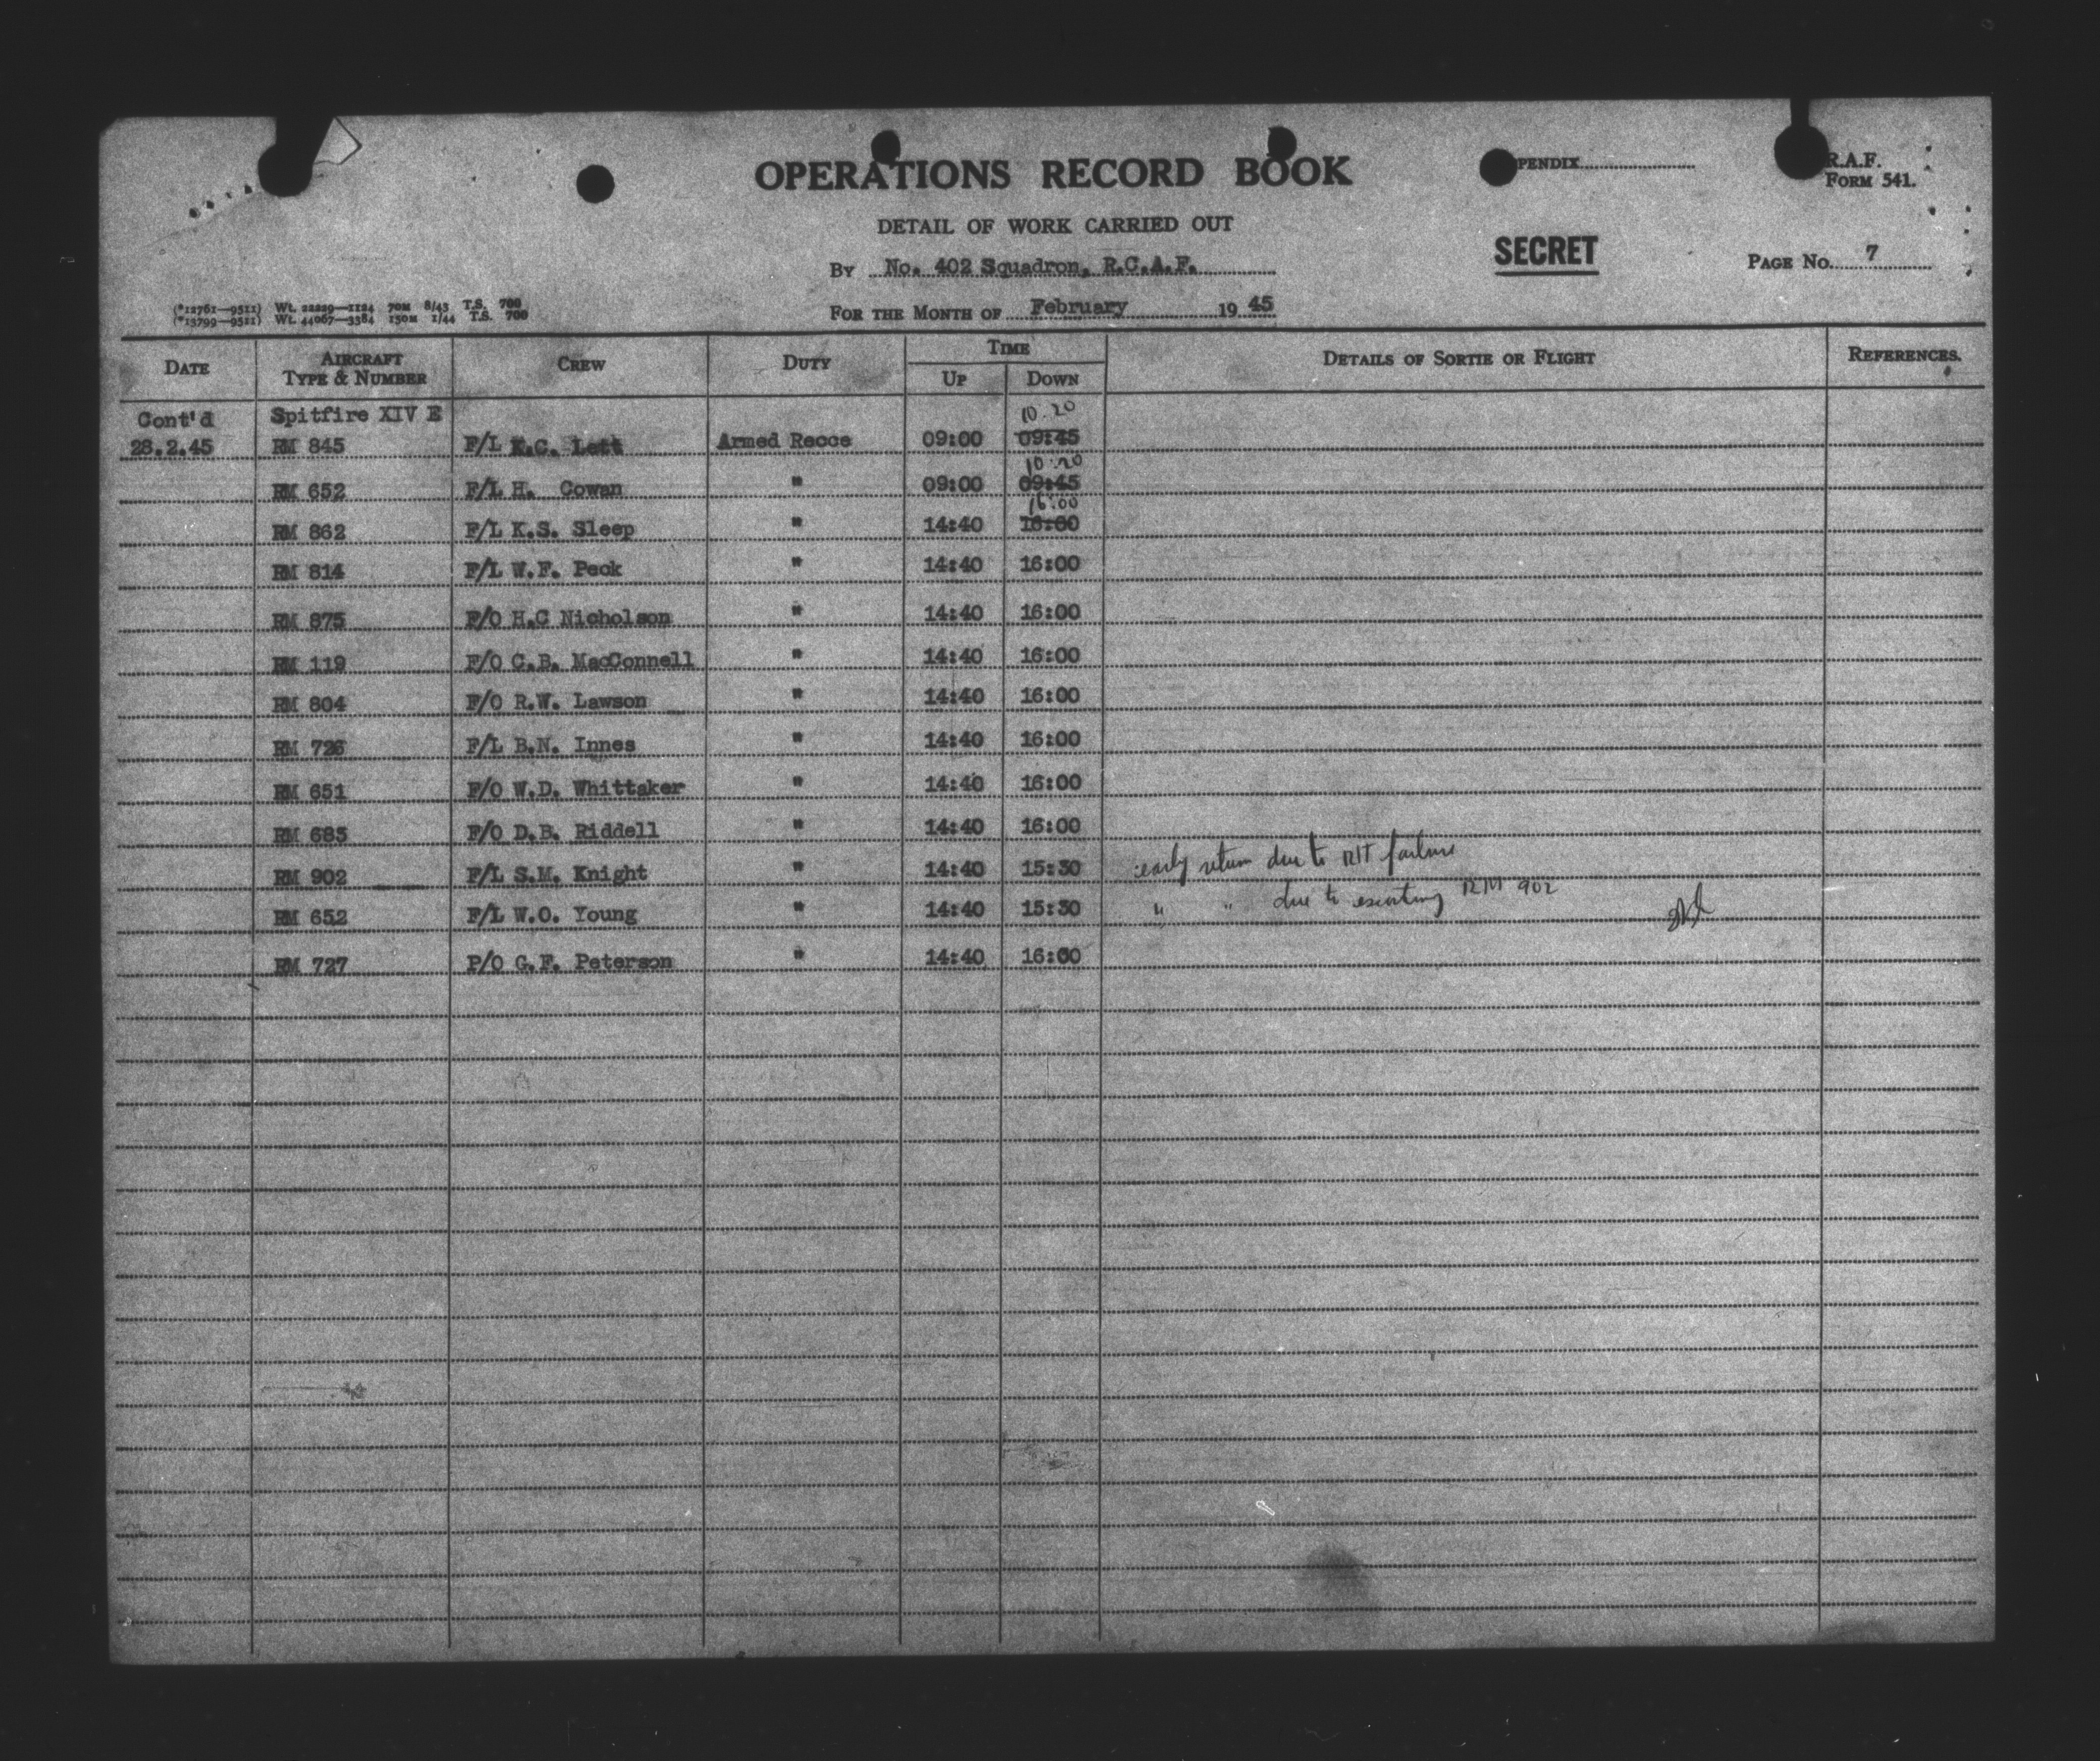 OPERATIONS RECORD BOOK
PENDIX
R.A.F.
FORM 541.
DETAIL OF WORK CARRIED OUT
SECRET
BY No. 402 Squadron, R.C.A.F.
PAGE No. 7
(*12761—9511) Wt. 22229—1124 70M 8/43 T.S. 700
(*13799—9511) Wt. 44067—3384 150M 1/44 T.S. 700
FOR THE MONTH OF February 19 45
DATE AIRCRAFT TYPE & NUMBER CREW DUTY TIME UP DOWN DETAILS OF SORTIE OR FLIGHT REFERENCES.
Cont'd Spitfire XIV E 10.20
28.2.45 RM 845 F/L K.C. Lett Armed Recce 09:00 09:45
10:20
RM 652 F/L H. Cowan " 09:00 09:45
16:00
RM 862 F/L K.S. Sleep " 14:40 16:00
RM 814 F/L W.F. Peck " 14:40 16:00
RM 875 F/O H.C Nicholson " 14:40 16:00
RM 119 F/O C.B. MacConnell " 14:40 16:00
RM 804 F/O R.W. Lawson " 14:40 16:00
RM 726 F/L B.N. Innes " 14:40 16:00
RM 651 F/O W.D. Whittaker " 14:40 16:00
RM 685 F/O D.B. Riddell " 14:40 16:00
RM 902 F/L S.M. Knight " 14:40 15:30 early return due to R/T failure
RM 652 F/L W.O. Young " 14:40 15:30 " " due to escorting RM 902
RM 727 P/O G.F. Peterson " 14:40 16:00